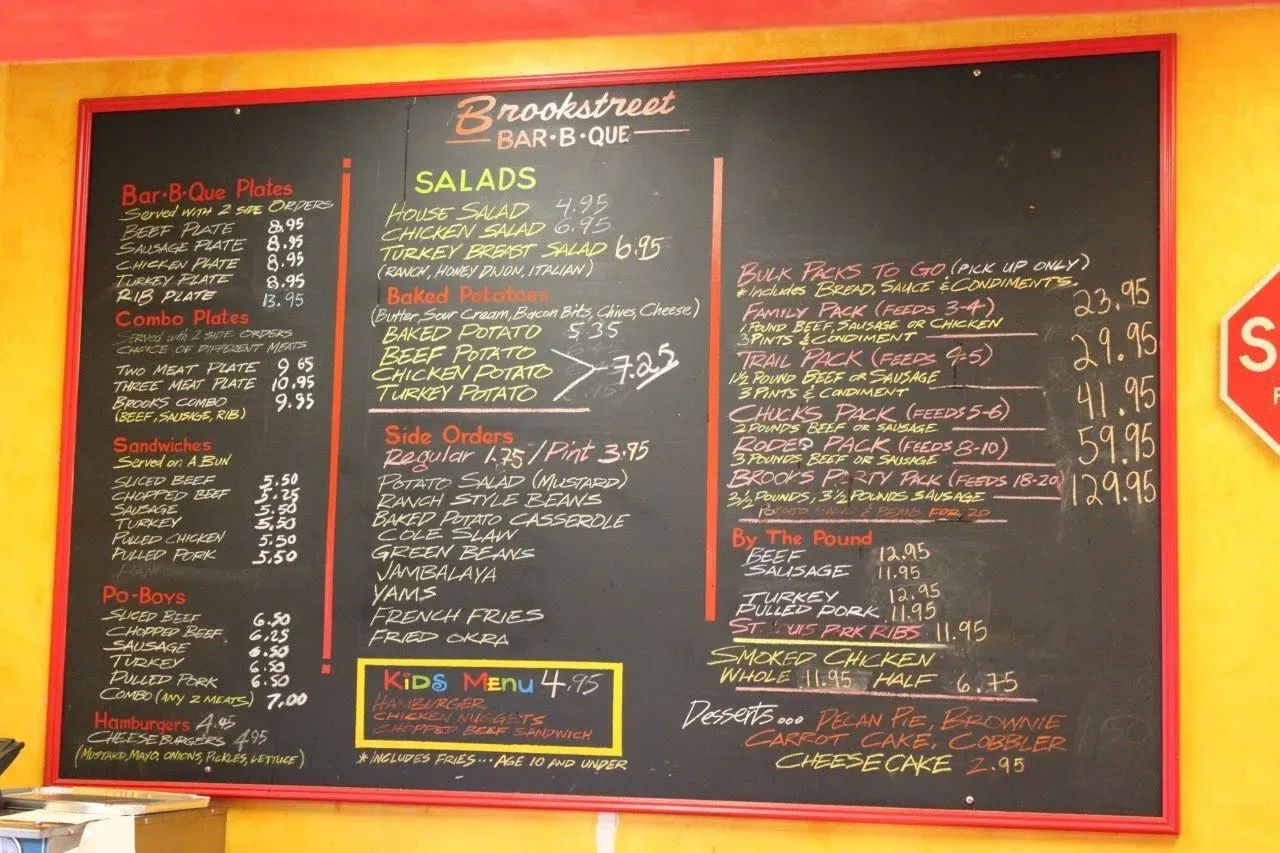 Brookstreet
BAR·B·QUE
Bar·B·Que Plates
Served with 2 side Orders
Beef Plate 8.95
Sausage Plate 8.95
Chicken Plate 8.95
Turkey Plate 8.95
Rib Plate 13.95
Combo Plates
Served with 2 side orders
Choice of Different Meats
Two Meat Plate 9.65
Three Meat Plate 10.95
Brooks Combo 9.95
(Beef, Sausage, Rib)
Sandwiches
Served on A Bun
Sliced Beef 5.50
Chopped Beef 5.25
Sausage 5.50
Turkey 5.50
Pulled Chicken 5.50
Pulled Pork 5.50
Ham
Po-Boys
Sliced Beef 6.50
Chopped Beef 6.25
Sausage 6.50
Turkey 6.50
Pulled Pork 6.50
Combo (Any 2 Meats) 7.00
Hamburgers 4.95
Cheeseburgers 4.95
(Mustard, Mayo, Onions, Pickles, Lettuce)
SALADS
House Salad 4.95
Chicken Salad 6.95
Turkey Breast Salad 6.95
(Ranch, Honey Dijon, Italian)
Baked Potatoes
(Butter, Sour Cream, Bacon Bits, Chives, Cheese)
Baked Potato 5.35
Beef Potato
Chicken Potato 7.25
Turkey Potato
Side Orders
Regular 1.75 / Pint 3.95
Potato Salad (Mustard)
Ranch Style Beans
Baked Potato Casserole
Cole Slaw
Green Beans
Jambalaya
Yams
French Fries
Fried Okra
KiDS Menu 4.95
Hamburger
Chicken Nuggets
Chopped Beef Sandwich
*Includes Fries... Age 10 and Under
Bulk Packs To Go (Pick up only)
*Includes Bread, Sauce & Condiments.
Family Pack (Feeds 3-4) 23.95
1 Pound Beef, Sausage or Chicken
3 Pints & Condiment
Trail Pack (Feeds 4-5) 29.95
1½ Pound Beef or Sausage
3 Pints & Condiment
Chucks Pack (Feeds 5-6) 41.95
2 Pounds Beef or Sausage
Rodeo Pack (Feeds 8-10) 59.95
3 Pounds Beef or Sausage
Brooks Party Pack (Feeds 18-20) 129.95
3½ Pounds, 3½ Pounds Sausage
Potato Salad & Beans for 20
By The Pound
Beef 12.95
Sausage 11.95
Turkey 12.95
Pulled Pork 11.95
St Louis Prk Ribs 11.95
Smoked Chicken
Whole 11.95 Half 6.75
Desserts... Pecan Pie, Brownie
Carrot Cake, Cobbler
Cheese Cake 2.95
S